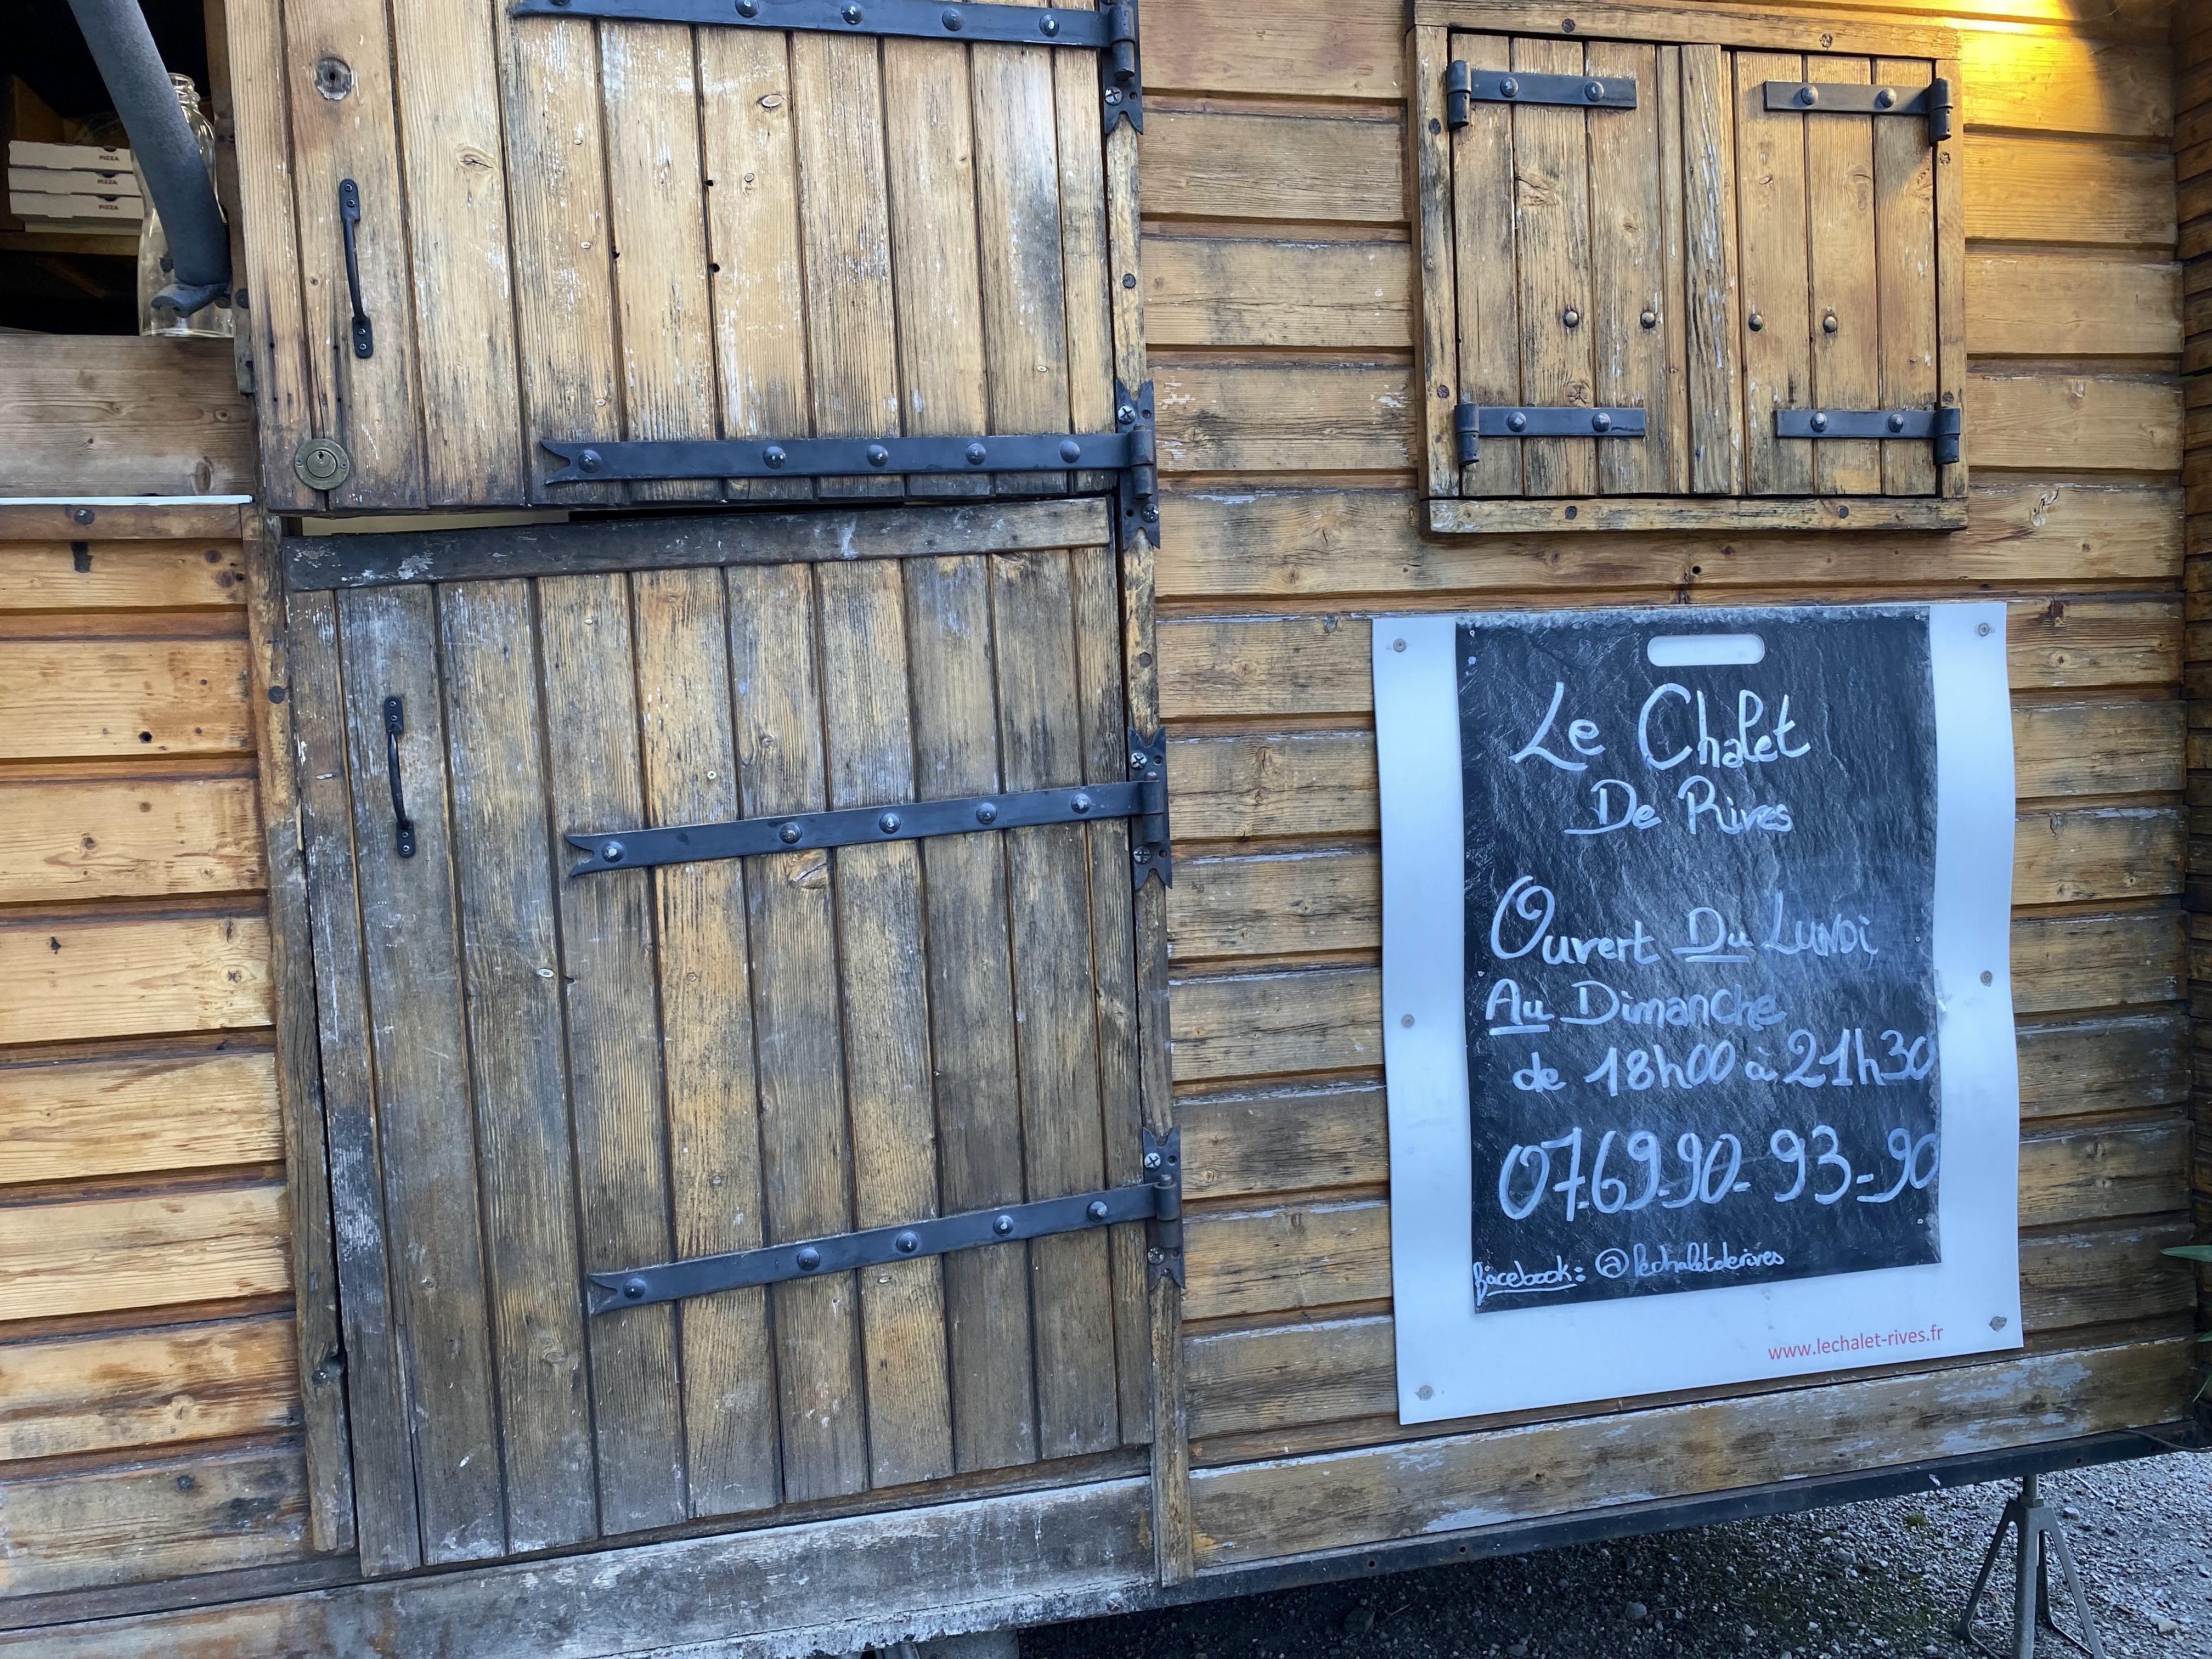 PIZZA
PIZZA
PIZZA
Le Chalet
De Rives
Ouvert Du Lundi
Au Dimanche
de 18h00 à 21h30
07.69-90-93-90
facebook: @lechaletderives
www.lechalet-rives.fr